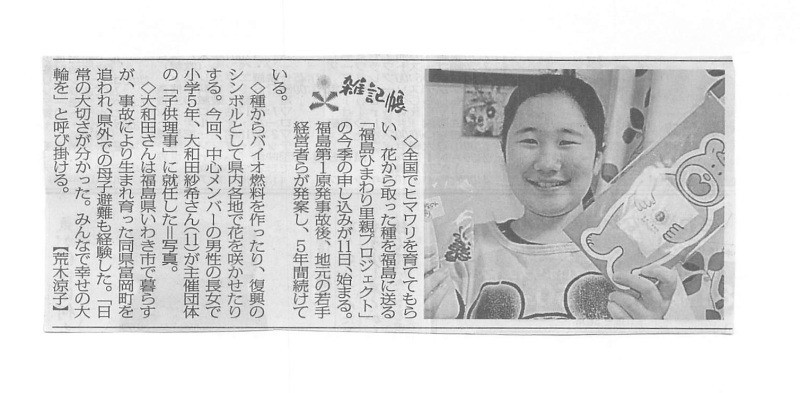 雑記帳
◇全国でヒマワリを育ててもら
い、花から取った種を福島に送る
「福島ひまわり里親プロジェクト」
の今季の申し込みが11日、始まる。
福島第1原発事故後、地元の若手
経営者らが発案し、5年間続けて
いる。
◇種からバイオ燃料を作ったり、復興の
シンボルとして県内各地で花を咲かせたり
する。今回、中心メンバーの男性の長女で
小学5年、大和田紗希さん(11)が主催団体
の「子供理事」に就任した=写真。
◇大和田さんは福島県いわき市で暮らす
が、事故により生まれ育った同県富岡町を
追われ、県外での母子避難も経験した。「日
常の大切さが分かった。みんなで幸せの大
輪を」と呼び掛ける。【荒木涼子】